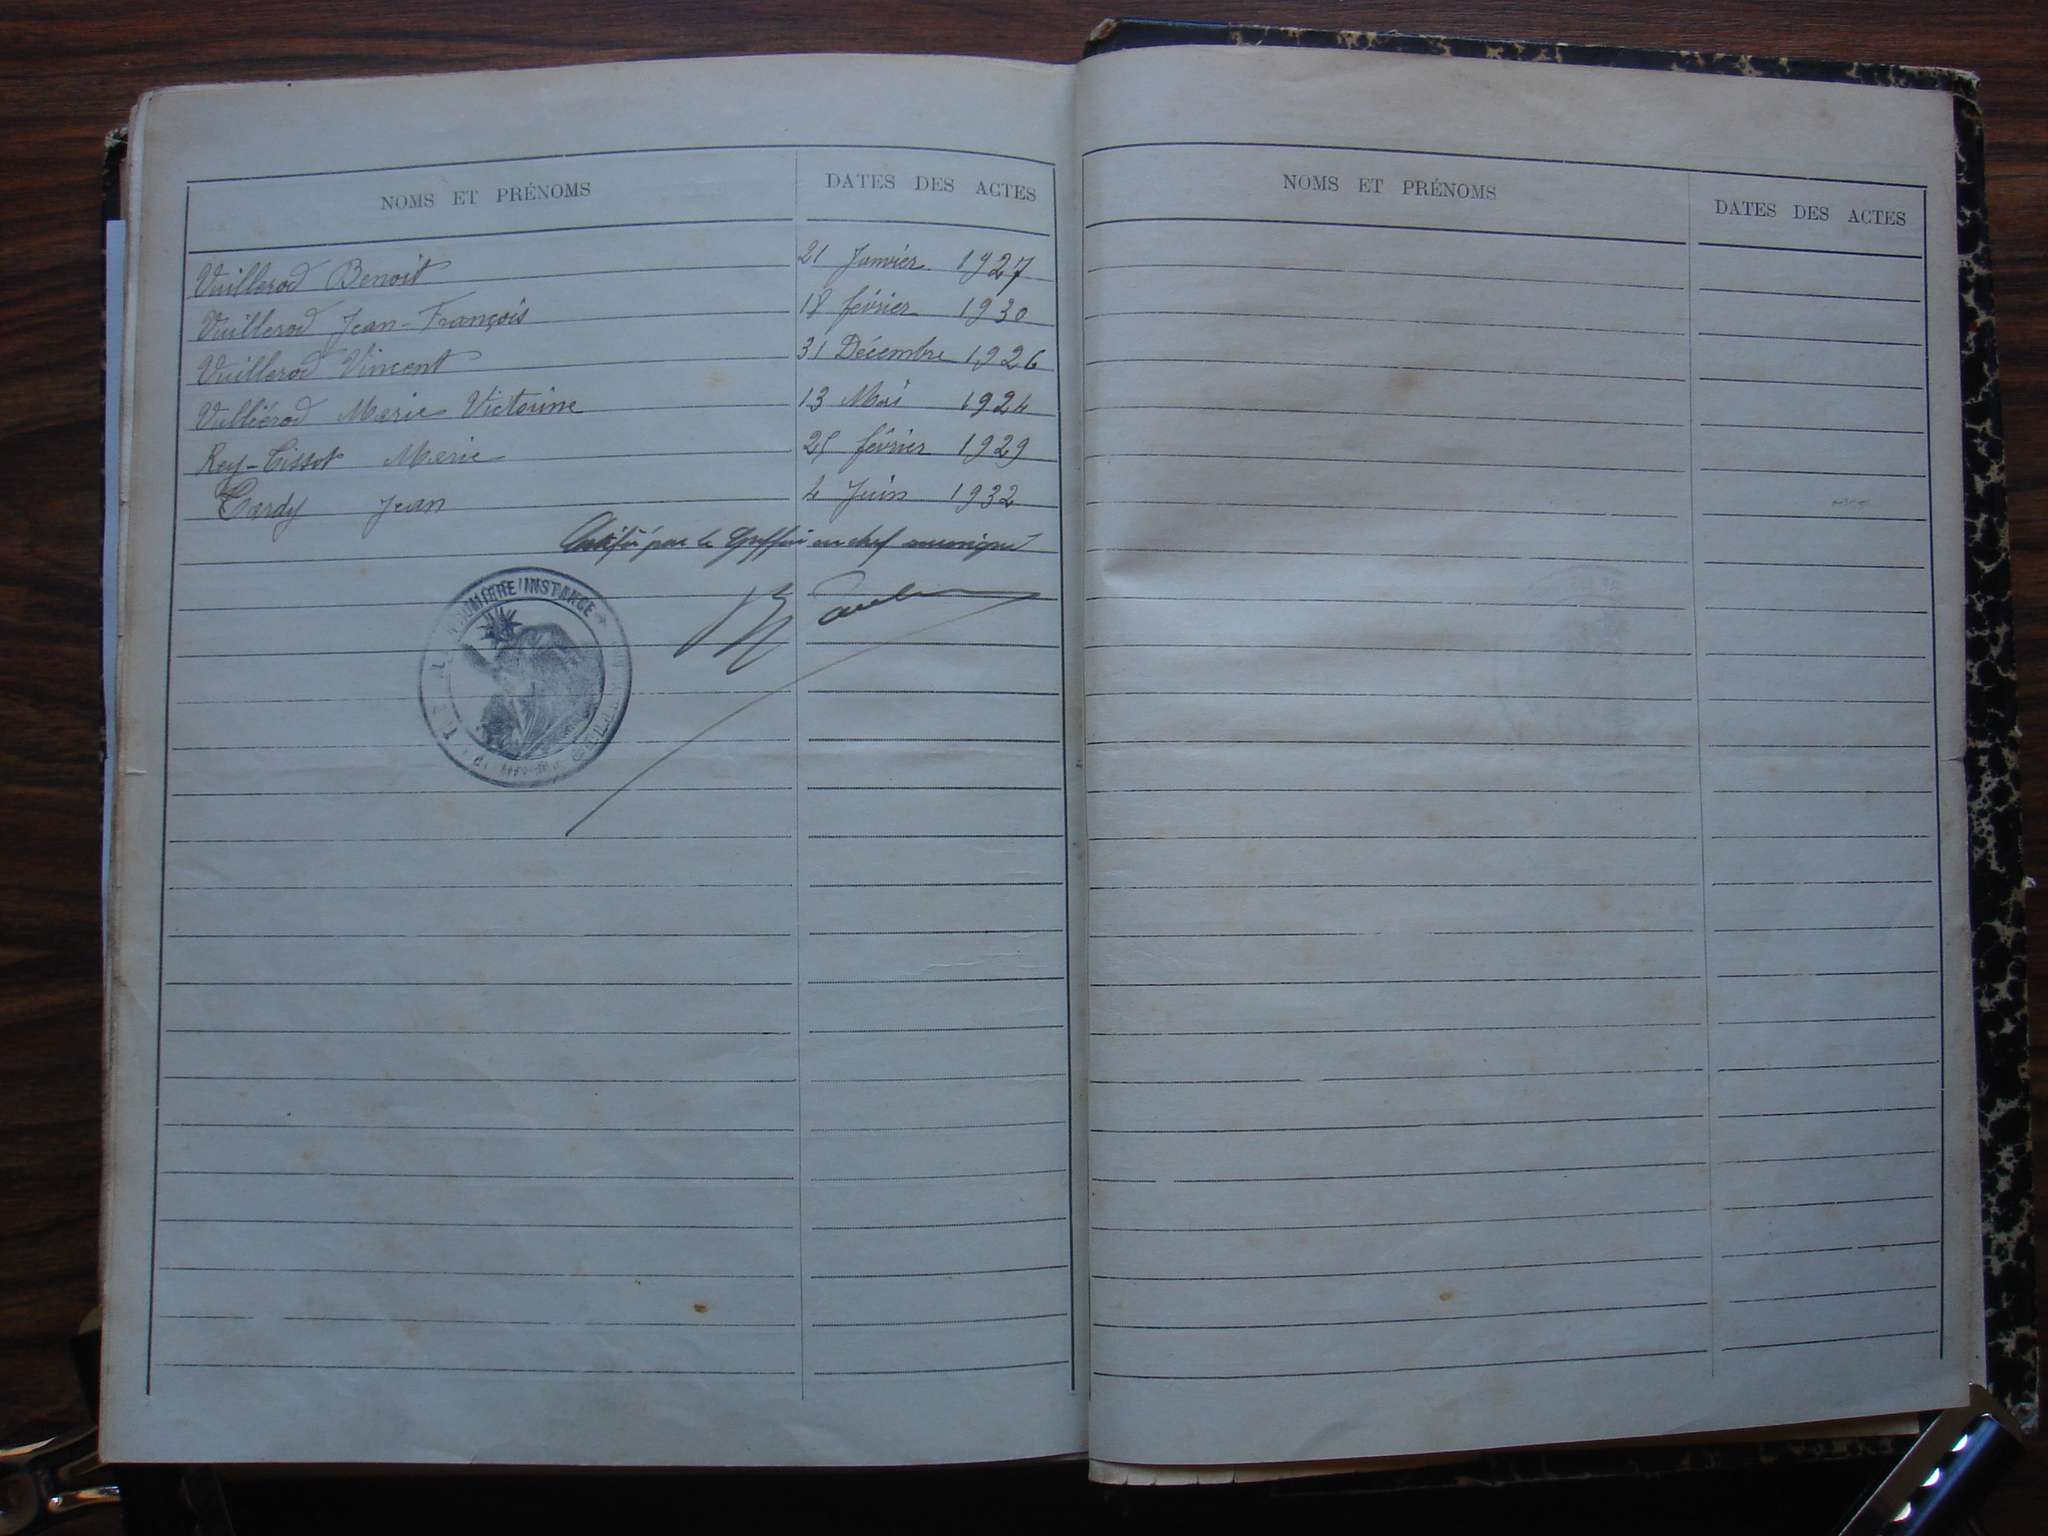 NOMS ET PRÉNOMS DATES DES ACTES
Vuillerod Benoit 21 Janvier 1927
Vuillerod Jean-François 18 février 1930
Vuillerod Vincent 31 Décembre 1926
Vulliérod Marie Victorine 13 Mai 1924
Rey-Tissot Marie 25 février 1929
Tardy Jean 4 Juin 1932
Certifié par le Greffier en chef soussigné
PREMIÈRE INSTANCE
NOMS ET PRÉNOMS DATES DES ACTES